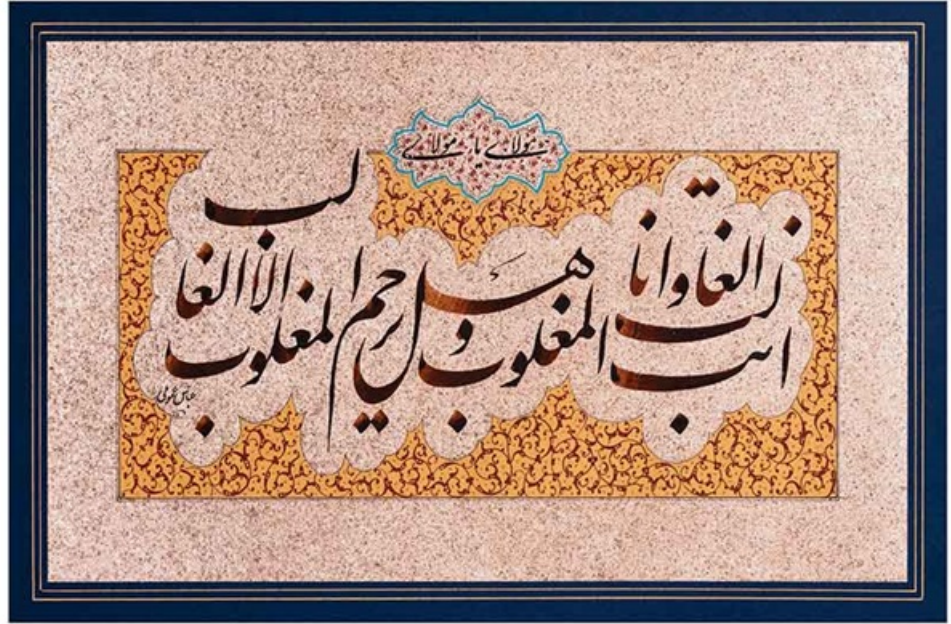 مولای یا مولای
انت الغالب وانا المغلوب وهل یرحم المغلوب الا الغالب